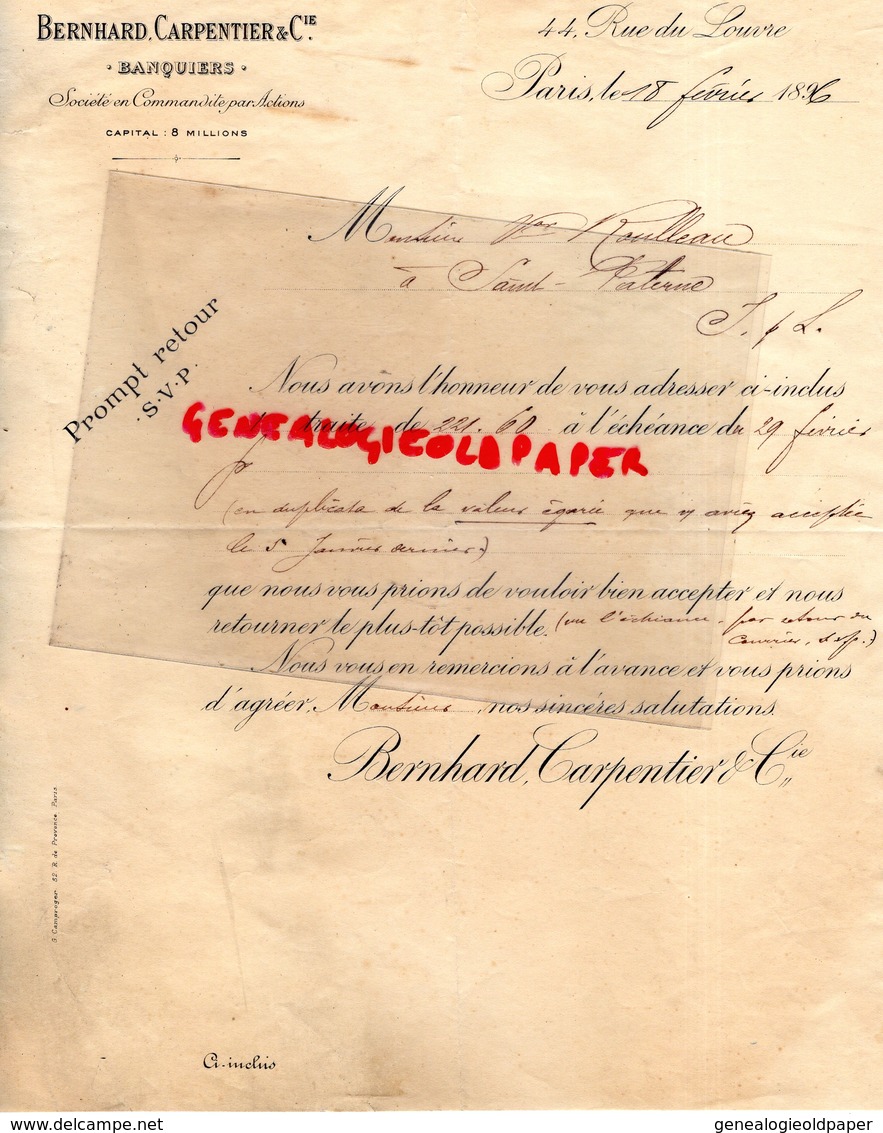 BERNHARD, CARPENTIER & CIE.
· BANQUIERS ·
Société en Commandite par Actions
CAPITAL : 8 MILLIONS
44, Rue du Louvre
Paris, le 18 février 1896
Monsieur Vor Roulleau
à Saint-Paterne
I. & L.
Prompt retour
S.V.P.
Nous avons l'honneur de vous adresser ci-inclus
1 traite de 221.60 à l'échéance du 29 février
GENEALOGIEOLDPAPER
(en duplicata de la valeur égarée que v aviez acceptée
le 5 Janvier dernier)
que nous vous prions de vouloir bien accepter et nous
retourner le plus-tôt possible. (vu l'échéance, par retour du
courrier, svp.)
Nous vous en remercions à l'avance et vous prions
d'agréer, Monsieur, nos sincères salutations.
Bernhard, Carpentier & Cie
G. Camproger. 52. R. de Provence. Paris.
Ci-inclus
genealogieoldpaper